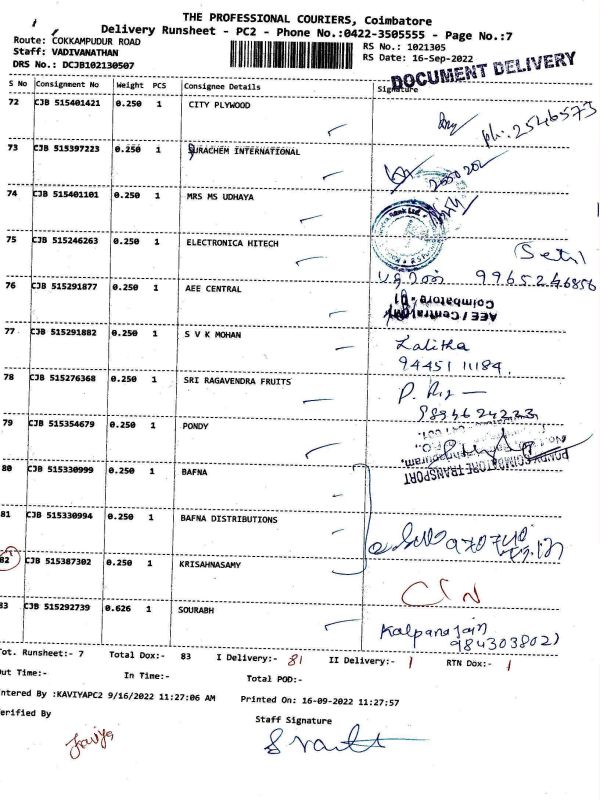 THE PROFESSIONAL COURIERS, Coimbatore
Delivery Runsheet - PC2 - Phone No.:0422-3505555 - Page No.:7
Route: COKKAMPUDUR ROAD RS No.: 1021305
Staff: VADIVANATHAN RS Date: 16-Sep-2022
DRS No.: DCJB102130507
DOCUMENT DELIVERY
S No Consignment No Weight PCS Consignee Details Signature
72 CJB 515401421 0.250 1 CITY PLYWOOD
ph: 2546573
73 CJB 515397223 0.250 1 SURACHEM INTERNATIONAL
74 CJB 515401101 0.250 1 MRS MS UDHAYA
75 CJB 515246263 0.250 1 ELECTRONICA HITECH
9965246856
76 CJB 515291877 0.250 1 AEE CENTRAL
AEE / Central
Coimbatore - 01
77 CJB 515291882 0.250 1 S V K MOHAN
Lalitha
94451 11184.
78 CJB 515276368 0.250 1 SRI RAGAVENDRA FRUITS
79 CJB 515354679 0.250 1 PONDY
PONDY COIMBATORE TRANSPORT
80 CJB 515330999 0.250 1 BAFNA
81 CJB 515330994 0.250 1 BAFNA DISTRIBUTIONS
82 CJB 515387302 0.250 1 KRISAHNASAMY
83 CJB 515292739 0.626 1 SOURABH
Kalpana jain
9843038021
Tot. Runsheet:- 7 Total Dox:- 83 I Delivery:- 81 II Delivery:- 1 RTN Dox:- 1
Out Time:- In Time:- Total POD:-
Entered By :KAVIYAPC2 9/16/2022 11:27:06 AM Printed On: 16-09-2022 11:27:57
Verified By Staff Signature
Kaviya